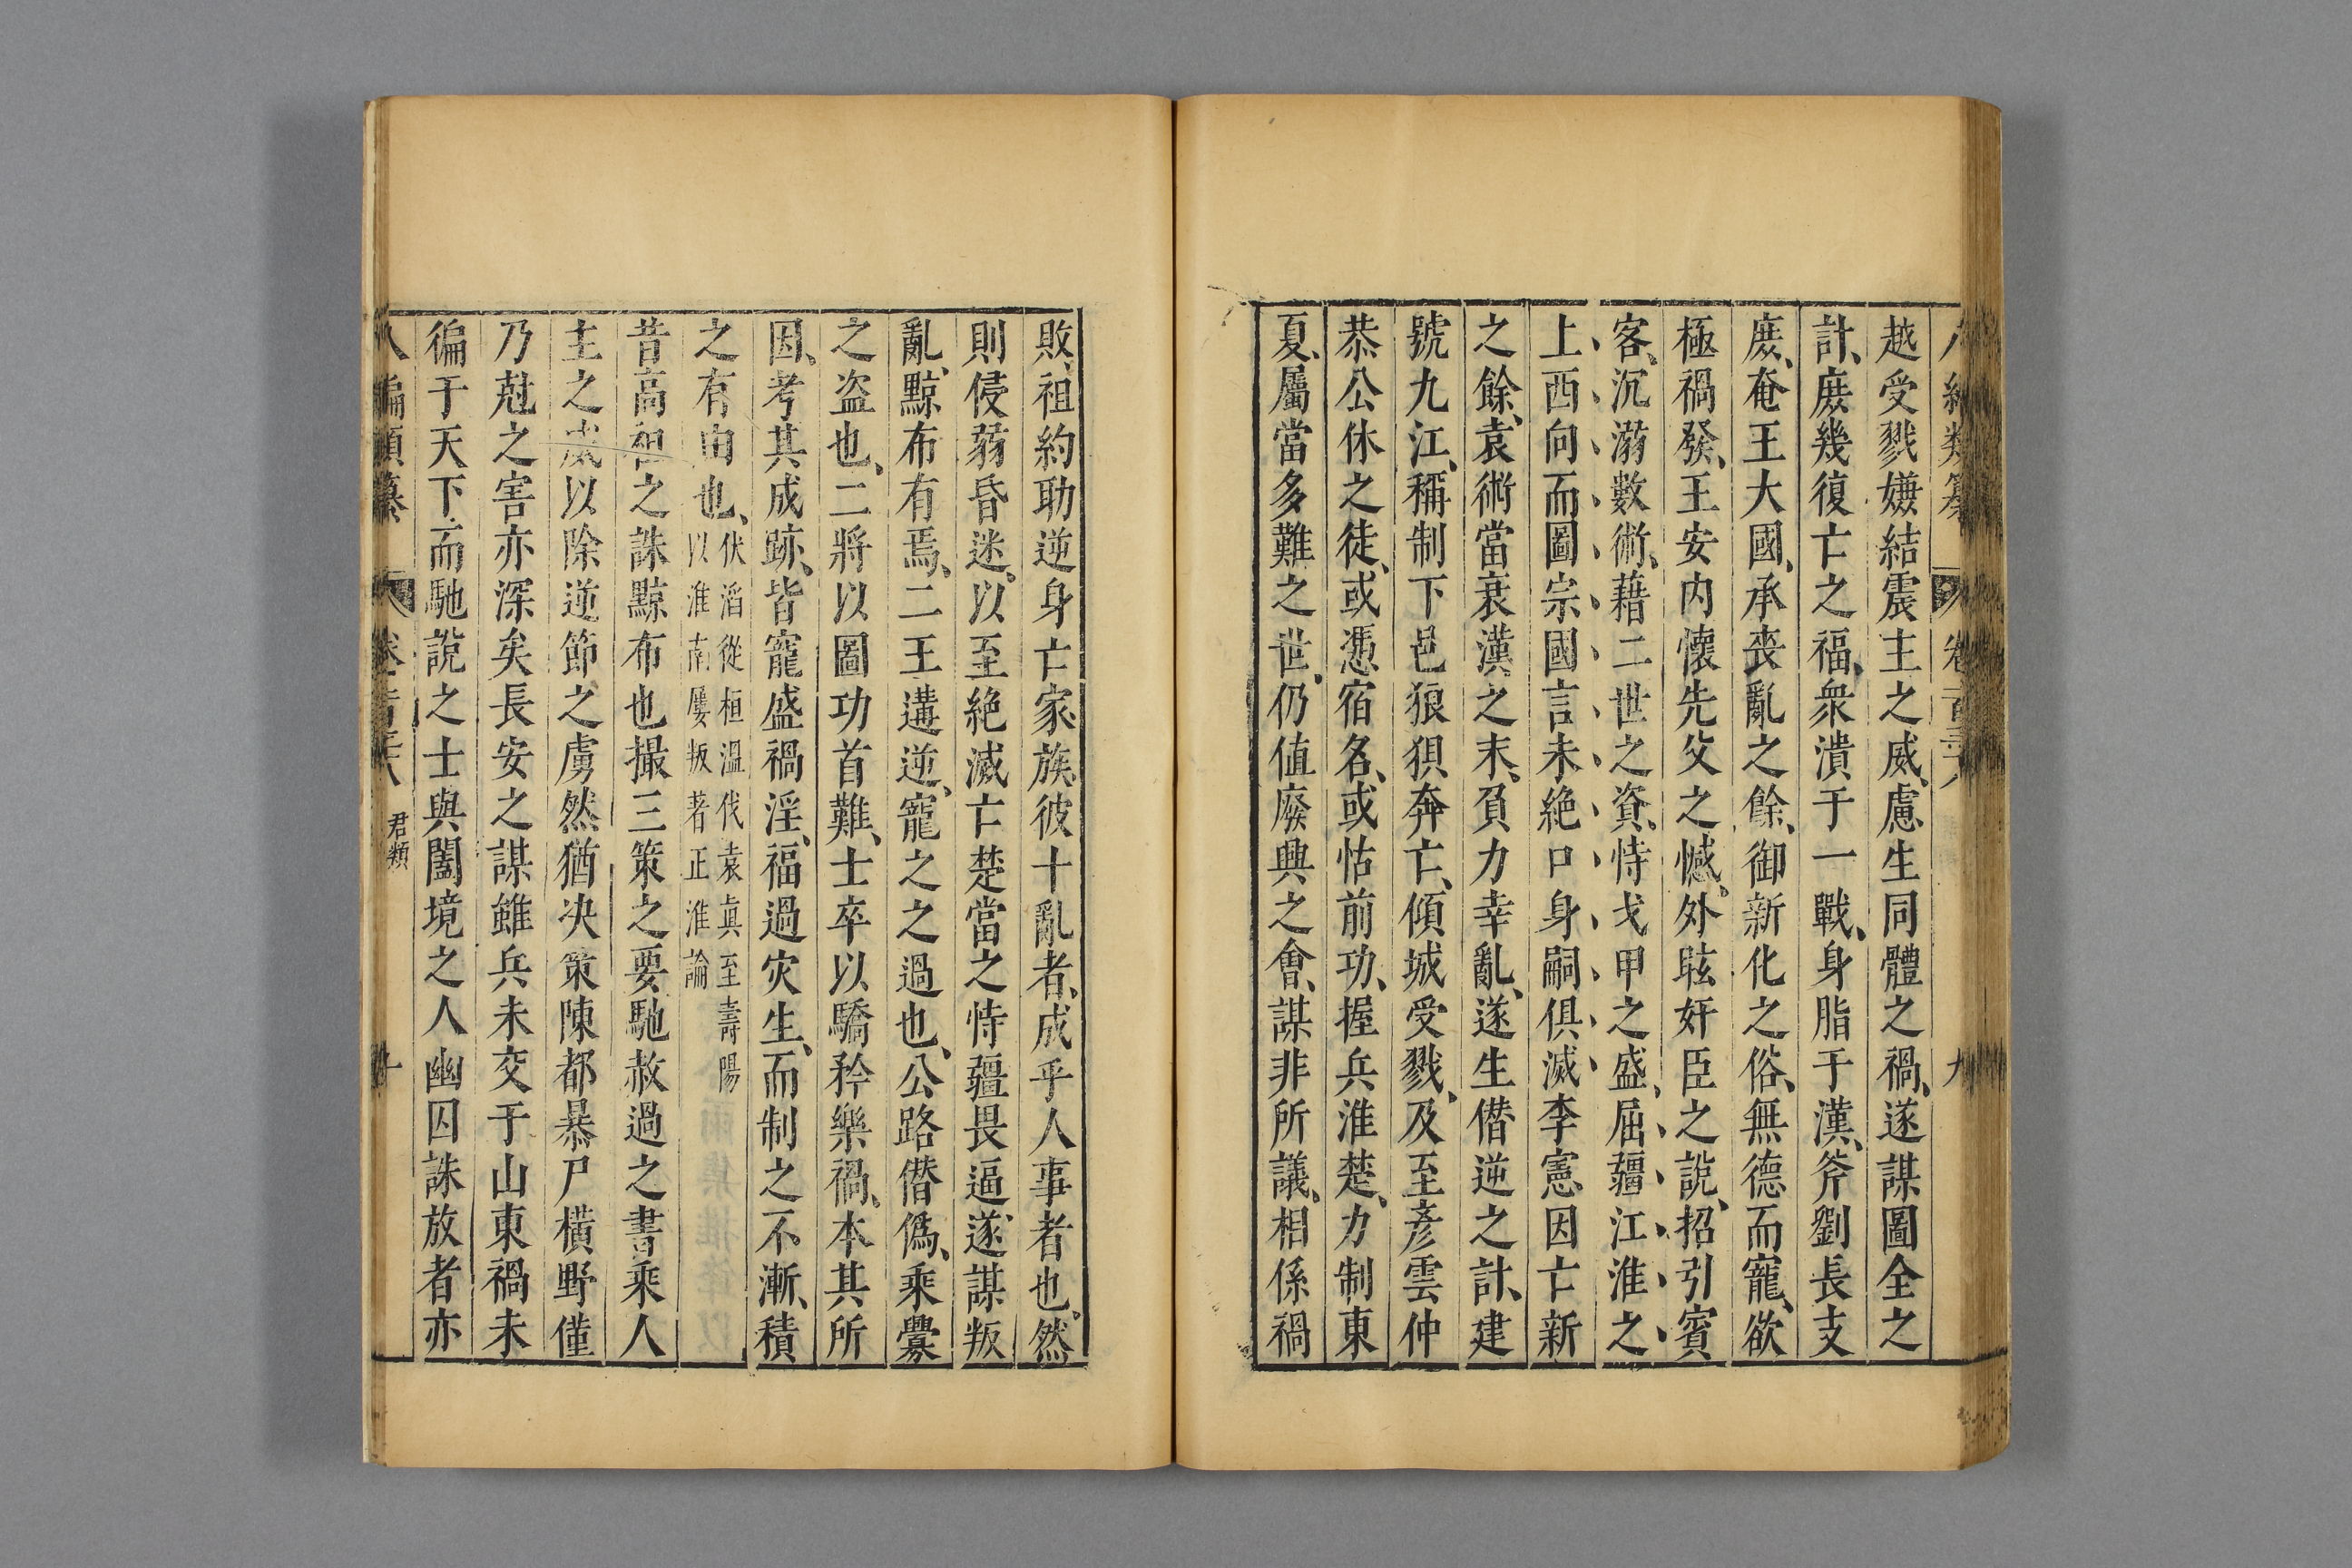 八編類纂 卷一百三十八 九
越受戮嫌結震主之威、慮生同體之禍、遂謀圖全之
計、庻幾復亡之福、衆潰于一戰、身脂于漢、斧劉長支
庻、奄王大國、承喪亂之餘、御新化之俗、無德而寵、欲
極禍發、王安内懷先父之憾、外眩奸臣之說、招引賓
客、沉溺數術、藉二世之資、恃戈甲之盛、屈疆江淮之
上、西向而圖宗國、言未絶口、身嗣俱滅、李憲因亡新
之餘、袁術當衰漢之末、負力幸亂、遂生僣逆之計、建
號九江、稱制下邑、狼狽奔亡、傾城受戮、及至彦雲仲
恭公休之徒、或憑宿名、或怙前功、握兵淮楚、力制東
夏、屬當多難之世、仍値廢興之會、謀非所議、相係禍
敗、祖約助逆、身亡家族、彼十亂者、成乎人事者也、然
則侵弱昏迷、以至絶滅亡楚當之、恃疆畏逼、遂謀叛
亂、黥布有焉、二王遘逆、寵之之過也、公路僣僞、乘釁
之盗也、二將以圖功首難、士卒以驕矜樂禍、本其所
因、考其成跡、皆寵盛禍淫、福過灾生、而制之不漸、積
之有由也、伏滔從桓溫伐袁眞至壽陽
以淮南屢叛著正淮論
昔高祖之誅黥布也撮三策之要馳赦過之書乘人
主之威以除逆節之虜然猶决策陳都暴尸橫野僅
乃尅之害亦深矣長安之謀雖兵未交于山東禍未
徧于天下而馳說之士與闔境之人幽囚誅放者亦
八編類纂 卷一百三十八 君類 十